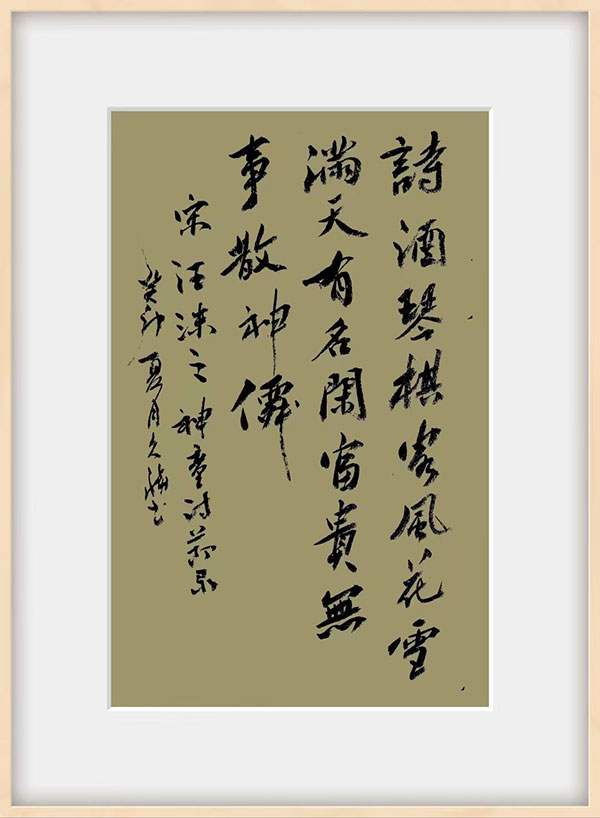 詩酒琴棋客風花雪
滿天有名閑富貴無
事散神僊
宋汪洙之神童诗節录
癸卯夏月久海书